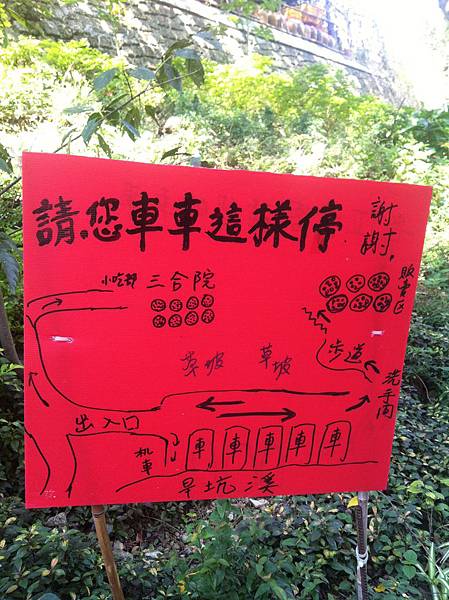 請您車車這樣停
謝謝.
小吃部 三合院
販賣区
草坡 草坡
步道
洗手間
出入口
机車
車 車 車 車 車
旱坑溪